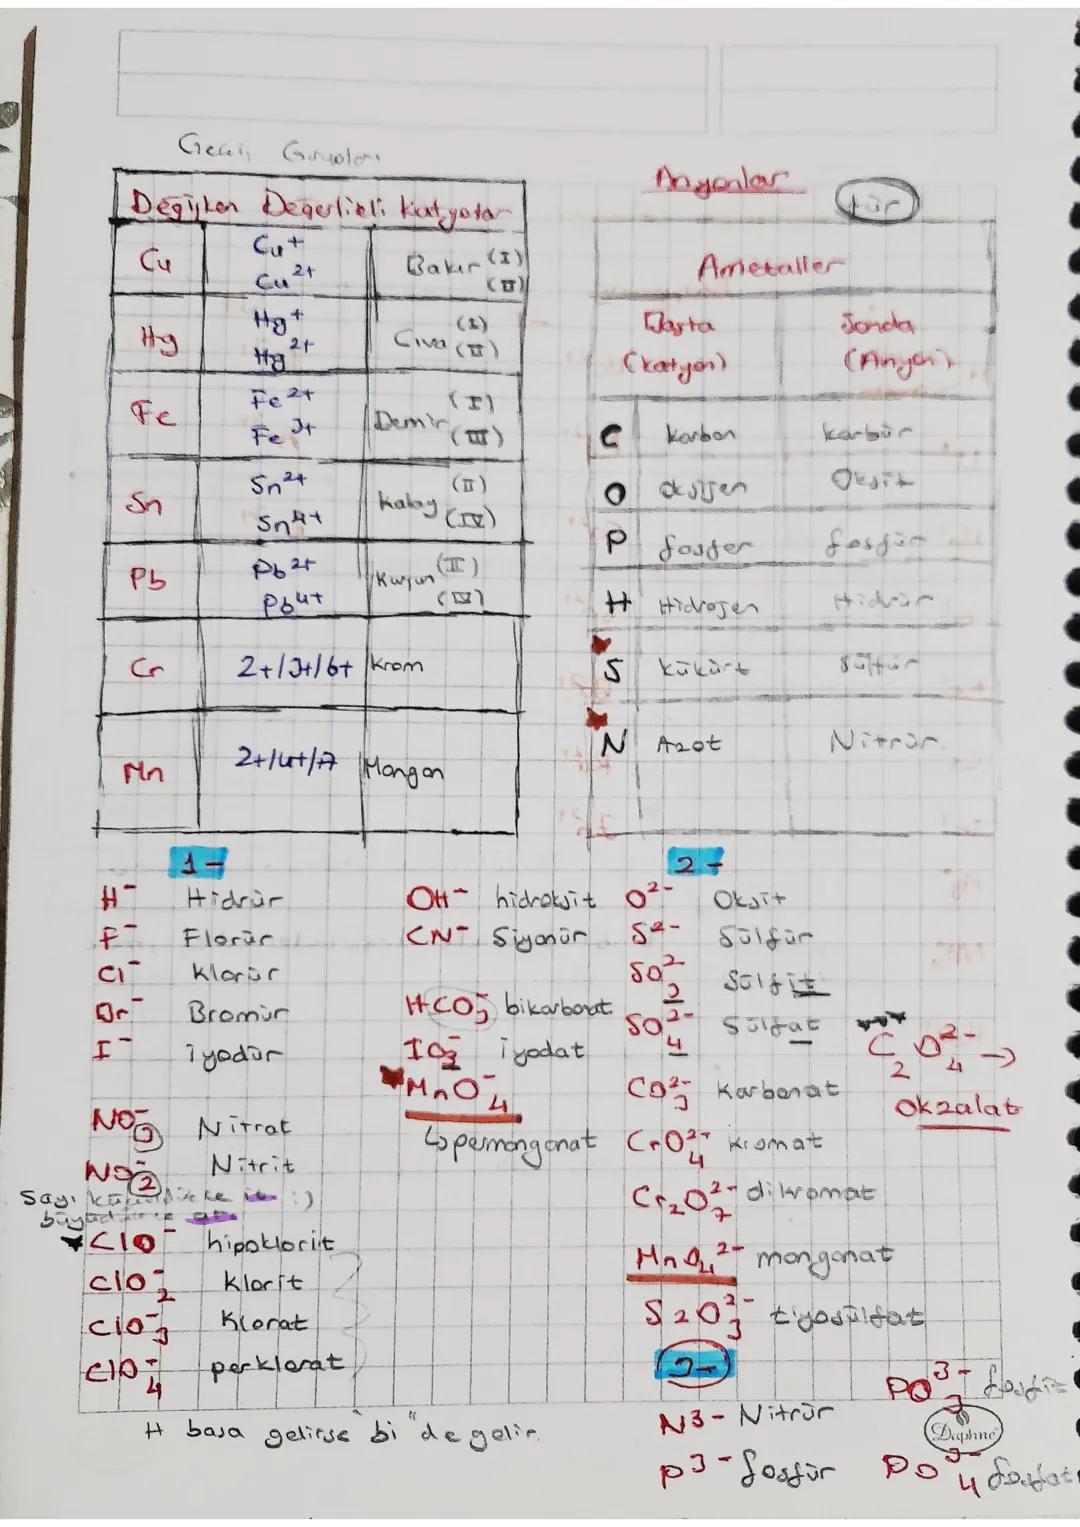 Geçiş Grupları
Değişken Değerlikli katyonlar
Cu Cu+ Cu2+ Bakır (I) (II)
Hg Hg+ Hg2+ Civa (I) (II)
Fe Fe2+ Fe3+ Demir (I) (III)
Sn Sn2+ Sn4+ Kalay (II) (IV)
Pb Pb2+ Pb4+ Kurşun (II) (IV)
Cr 2+/3+/6+ Krom
Mn 2+/4+/7 Mangan
Anyonlar
tür
Ametaller
Başta (katyon) Sonda (Anyon)
C karbon karbür
O oksijen Oksit
P fosfor fosfür
H Hidrojen Hidrür
S kükürt sülfür
N Azot Nitrür
1-
H- Hidrür
F- Florür
Cl- Klorür
Br- Bromür
I- iyodür
NO3- Nitrat
NO2- Nitrit
Sayı küçüldükçe it :)
büyüdükçe at
ClO- hipoklorit
ClO2- klorit
ClO3- klorat
ClO4- perklorat
H başa gelirse "bi" de gelir.
OH- hidroksit
CN- Siyanür
HCO3- bikarbonat
IO3- iyodat
MnO4-
↳ permanganat
2-
O2- Oksit
S2- Sülfür
SO3 2- Sülfit
SO4 2- Sülfat
CO3 2- Karbonat
CrO4 2- Kromat
Cr2O7 2- dikromat
MnO4 2- manganat
S2O3 2- tiyosülfat
C2O4 2- →
Okzalat
3-
N3- Nitrür
P3- fosfür
PO3 3- fosfit
PO4 3- fosfat
Daphne